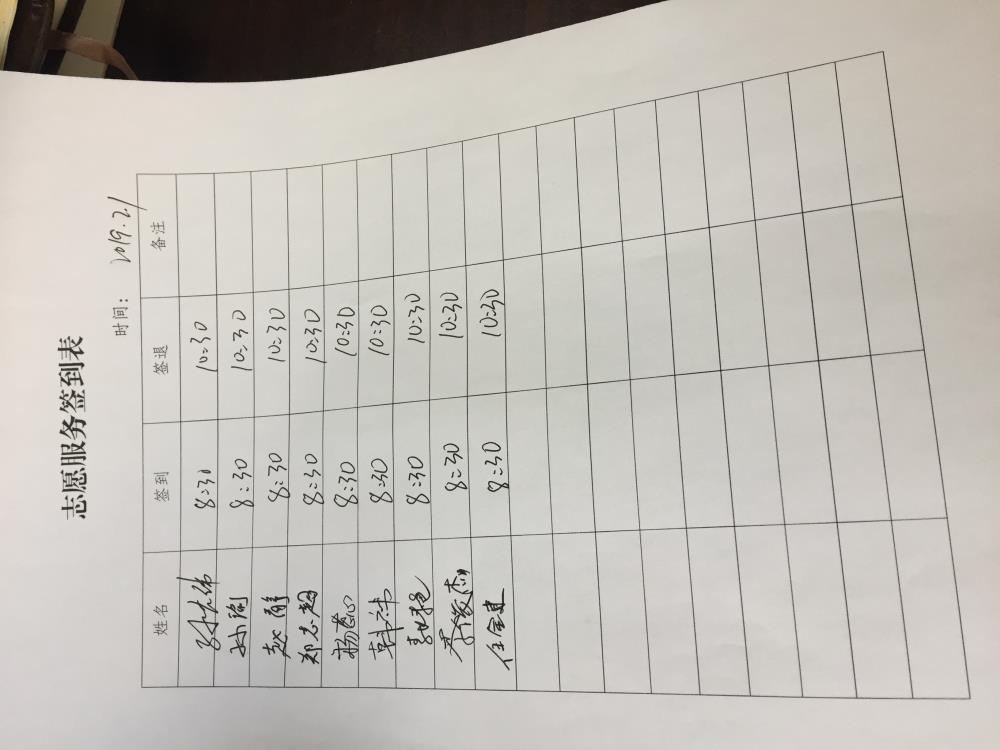 志愿服务签到表
时间：2019.2.1
姓名 签到 签退 备注
8:30 10:30
孙陶 8:30 10:30
赵鹏 8:30 10:30
郑志超 8:30 10:30
杨蕊 8:30 10:30
韩祎 8:30 10:30
8:30 10:30
李俊杰 8:30 10:30
任金建 8:30 10:30